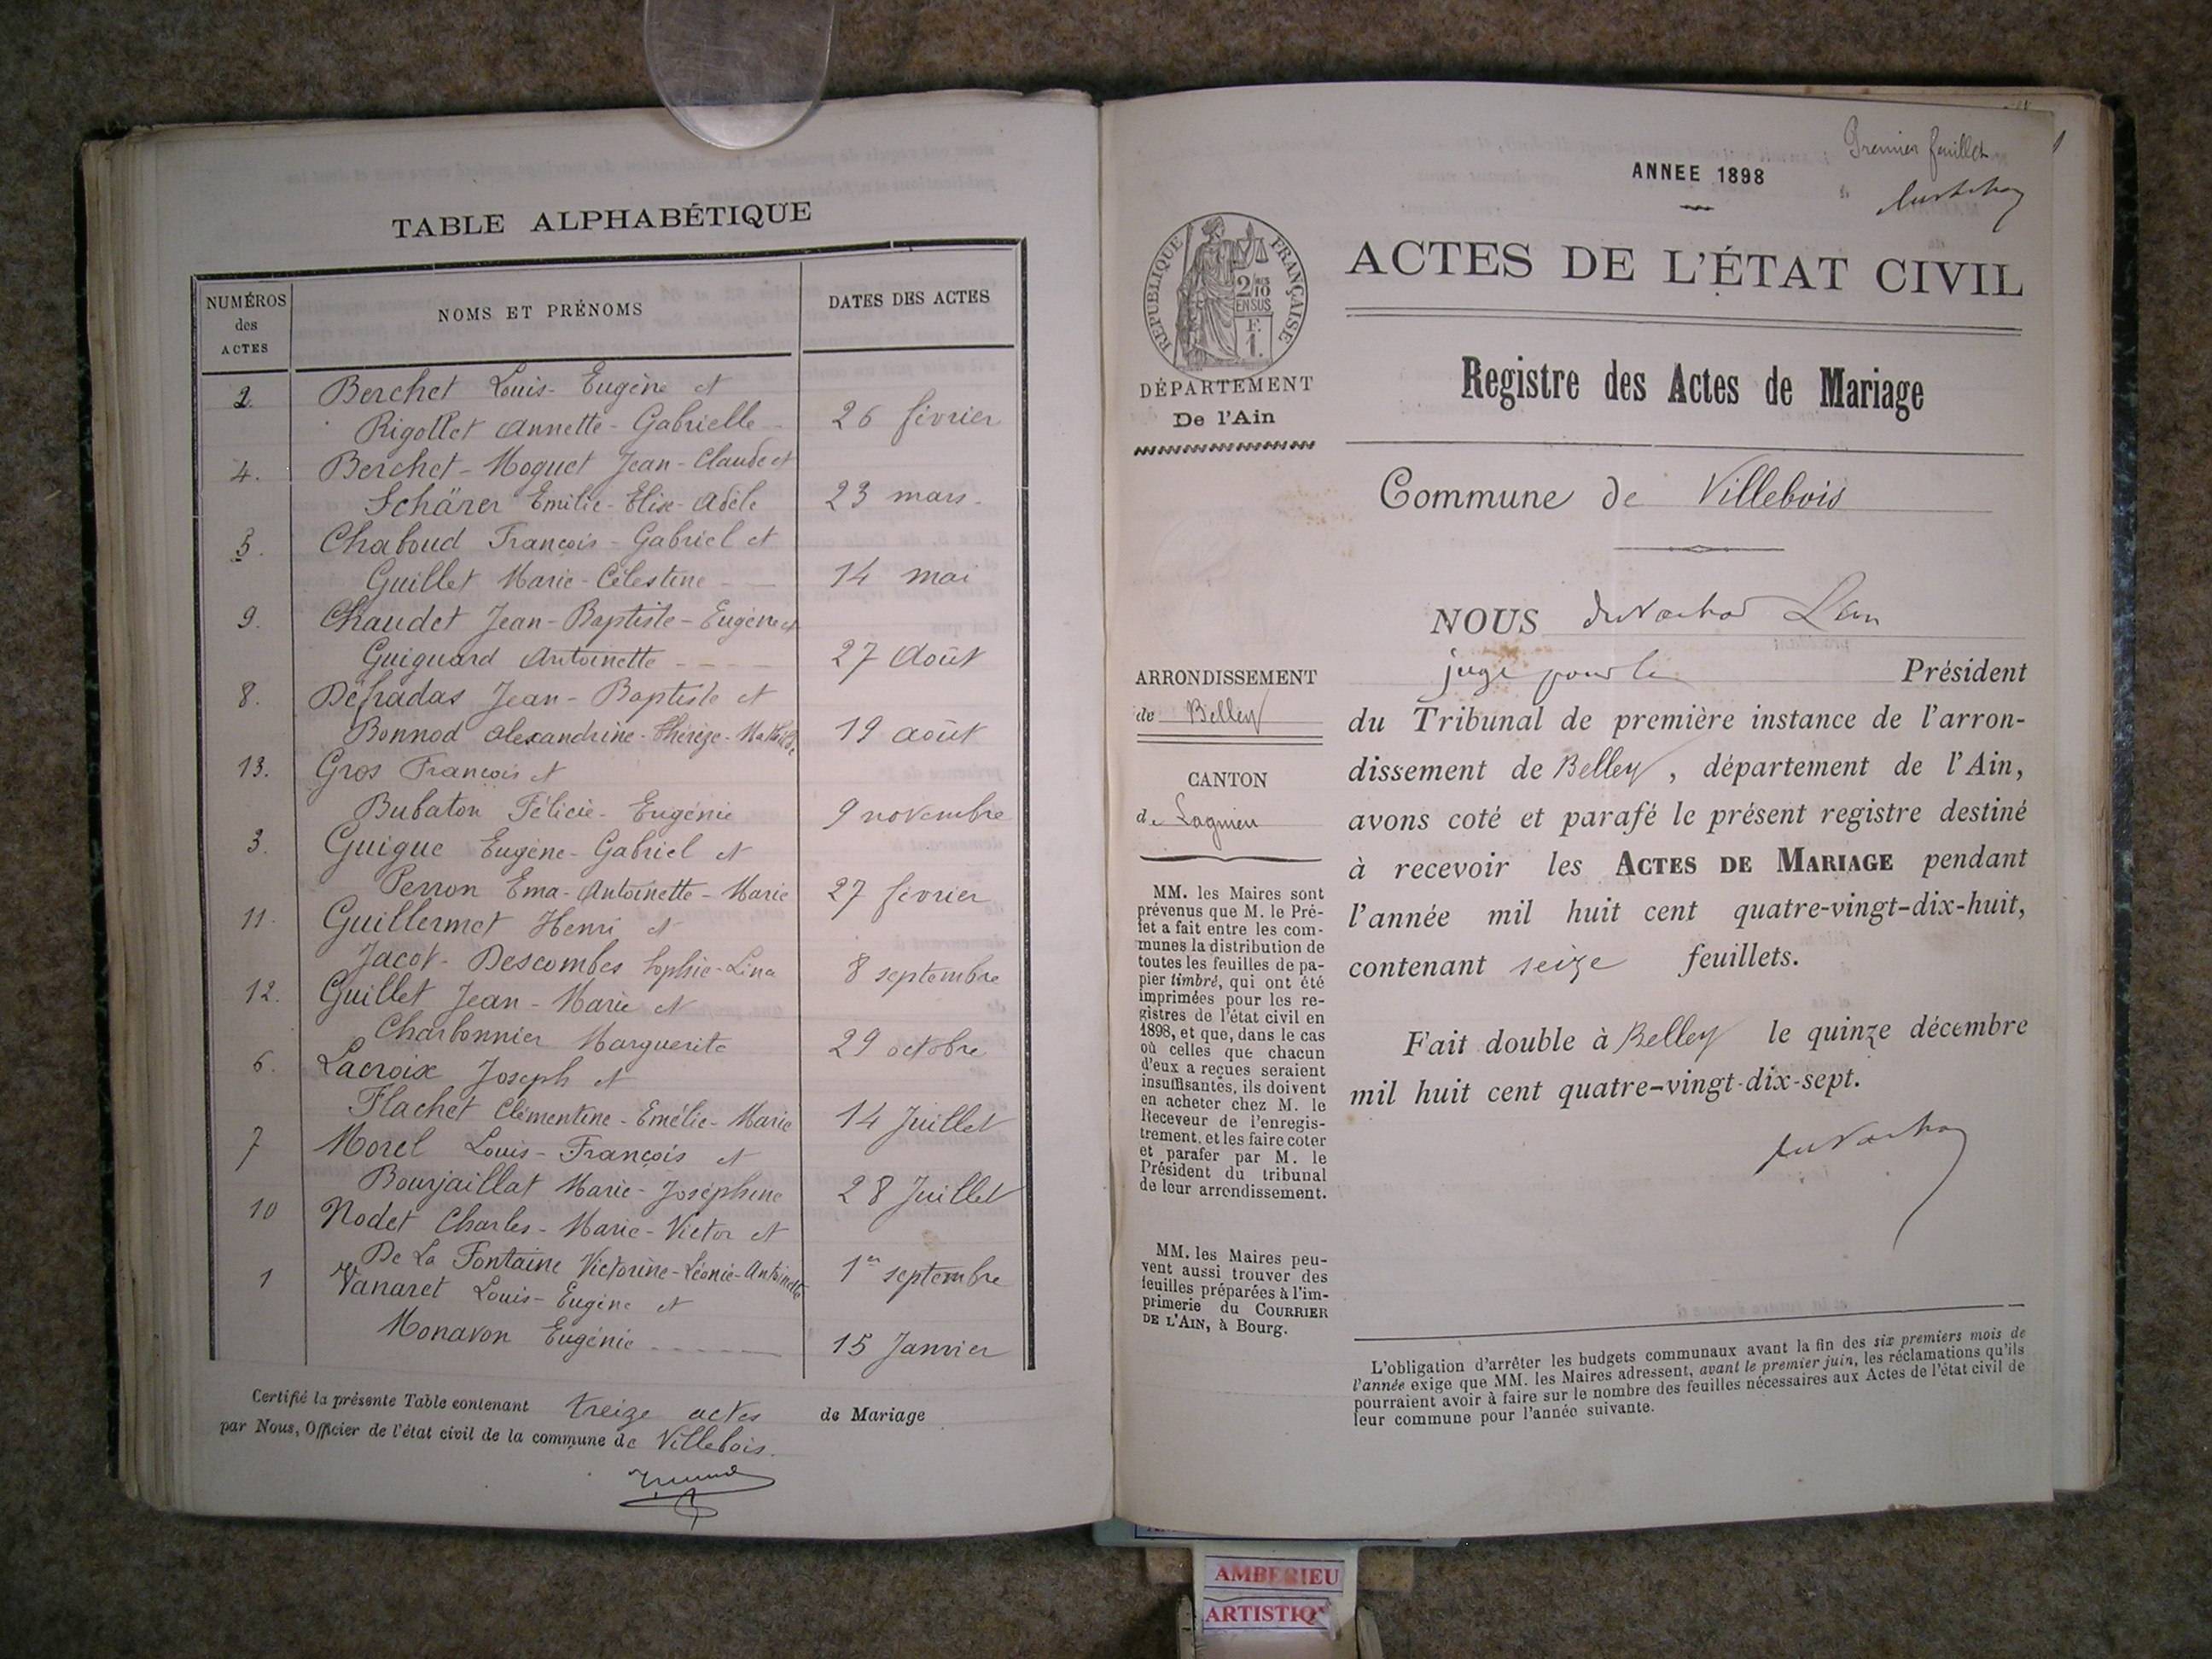 TABLE ALPHABÉTIQUE
NUMÉROS des ACTES
NOMS ET PRÉNOMS
DATES DES ACTES
2. Berchet Louis-Eugène et
Rigollet Annette-Gabrielle 26 février
4. Berchet-Moguet Jean-Claude et
Schärer Emilie-Elise-Adèle 23 mars
5. Chaboud François-Gabriel et
Guillet Marie-Célestine 14 mai
9. Chaudet Jean-Baptiste-Eugène et
Guiguard Antoinette 27 Août
8. Défradas Jean-Baptiste et
Bonnod Alexandrine-Thérèze-Mathilde 19 août
13. Gros François et
Bubaton Félicie-Eugénie 9 novembre
3. Guigue Eugène-Gabriel et
Perron Ema-Antoinette-Marie 27 février
11. Guillermet Henri et
Jacot-Descombes Sophie-Lina 8 septembre
12. Guillet Jean-Marie et
Charbonnier Marguerite 29 octobre
6. Lacroix Joseph et
Flachet Clémentine-Emélie-Marie 14 Juillet
7 Morel Louis-François et
Bourjaillat Marie-Joséphine 28 Juillet
10 Nodet Charles-Marie-Victor et
De La Fontaine Victorine-Léonie-Antoinette 1er septembre
1 Vanaret Louis-Eugène et
Monavon Eugénie 15 Janvier
Certifié la présente Table contenant treize actes de Mariage
par Nous, Officier de l'état civil de la commune de Villebois.
Premier feuillet
1
ANNEE 1898
RÉPUBLIQUE FRANÇAISE
2/10
EN SUS
F.
1.
DÉPARTEMENT
De l'Ain
ARRONDISSEMENT
de Belley
CANTON
de Lagnieu
MM. les Maires sont
prévenus que M. le Pré-
fet a fait entre les com-
munes la distribution de
toutes les feuilles de pa-
pier timbré, qui ont été
imprimées pour les re-
gistres de l'état civil en
1898, et que, dans le cas
où celles que chacun
d'eux a reçues seraient
insuffisantes, ils doivent
en acheter chez M. le
Receveur de l'enregis-
trement, et les faire coter
et parafer par M. le
Président du tribunal
de leur arrondissement.
MM. les Maires peu-
vent aussi trouver des
feuilles préparées à l'im-
primerie du COURRIER
DE L'AIN, à Bourg.
ACTES DE L'ÉTAT CIVIL
Registre des Actes de Mariage
Commune de Villebois
NOUS
juge pour le Président
du Tribunal de première instance de l'arron-
dissement de Belley, département de l'Ain,
avons coté et parafé le présent registre destiné
à recevoir les ACTES DE MARIAGE pendant
l'année mil huit cent quatre-vingt-dix-huit,
contenant seize feuillets.
Fait double à Belley le quinze décembre
mil huit cent quatre-vingt-dix-sept.
L'obligation d'arrêter les budgets communaux avant la fin des six premiers mois de
l'année exige que MM. les Maires adressent, avant le premier juin, les réclamations qu'ils
pourraient avoir à faire sur le nombre des feuilles nécessaires aux Actes de l'état civil de
leur commune pour l'année suivante.
AMBERIEU
ARTISTIQ